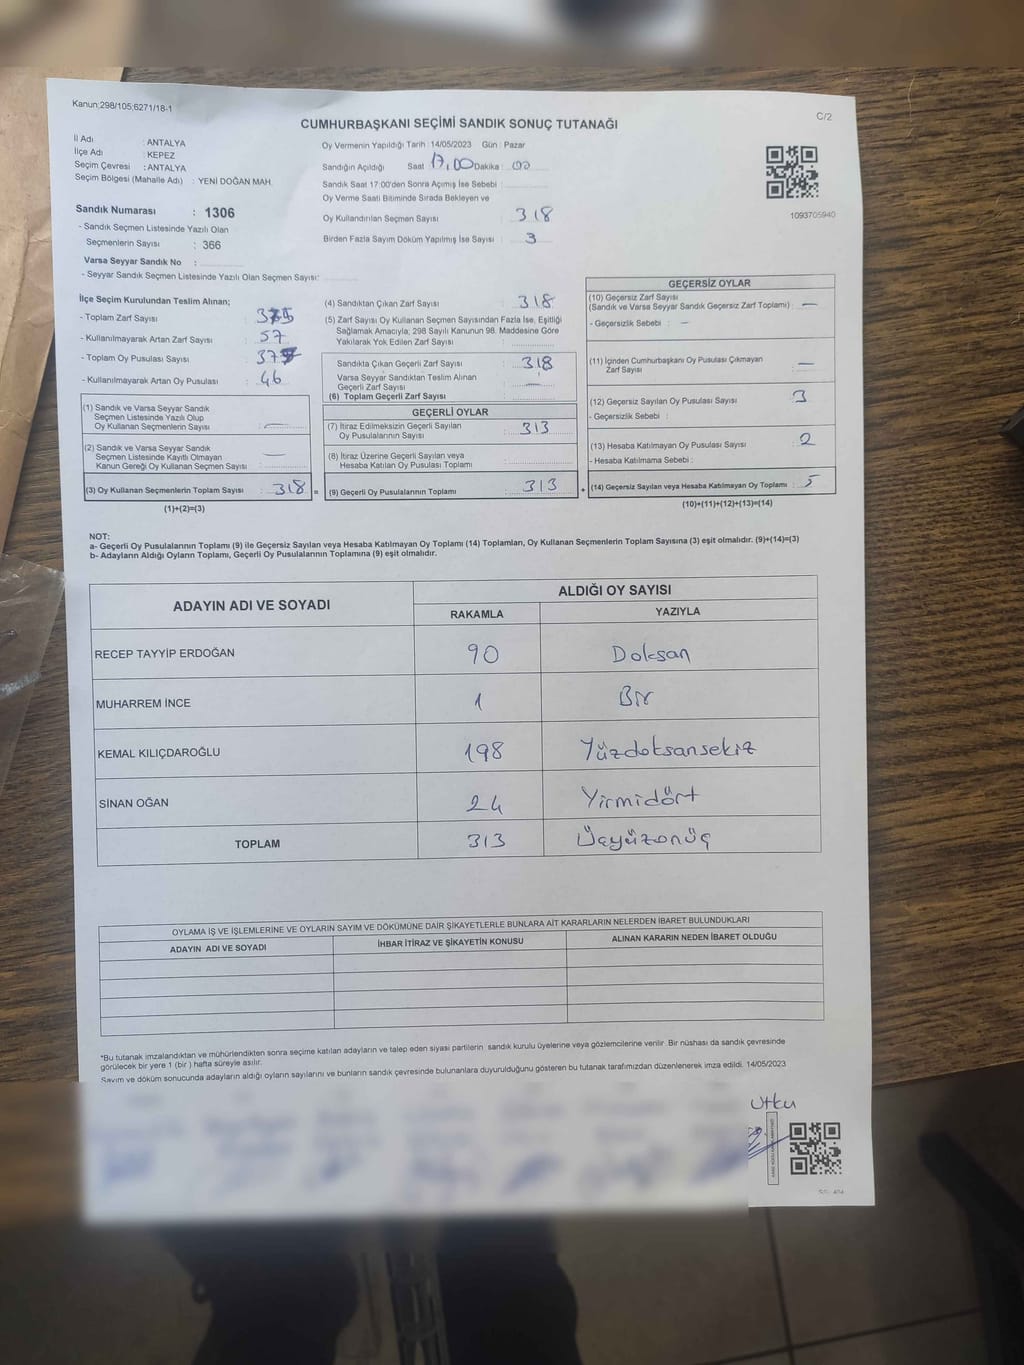 Kanun;298/105,6271/18-1
C/2
CUMHURBAŞKANI SEÇİMİ SANDIK SONUÇ TUTANAĞI
İl Adı : ANTALYA
İlçe Adı : KEPEZ
Seçim Çevresi : ANTALYA
Seçim Bölgesi (Mahalle Adı) : YENİ DOĞAN MAH.
Sandık Numarası : 1306
- Sandık Seçmen Listesinde Yazılı Olan
Seçmenlerin Sayısı : 366
Varsa Seyyar Sandık No :
- Seyyar Sandık Seçmen Listesinde Yazılı Olan Seçmen Sayısı:
Oy Vermenin Yapıldığı Tarih : 14/05/2023 Gün : Pazar
Sandığın Açıldığı Saat 17,00 Dakika : 00
Sandık Saat 17:00'den Sonra Açımış İse Sebebi :
Oy Verme Saati Bitiminde Sırada Bekleyen ve
Oy Kullandırılan Seçmen Sayısı : 318
Birden Fazla Sayım Döküm Yapılmış İse Sayısı : 3
1093705940
İlçe Seçim Kurulundan Teslim Alınan;
- Toplam Zarf Sayısı : 375
- Kullanılmayarak Artan Zarf Sayısı : 57
- Toplam Oy Pusulası Sayısı : 377
- Kullanılmayarak Artan Oy Pusulası : 46
(1) Sandık ve Varsa Seyyar Sandık
Seçmen Listesinde Yazılı Olup
Oy Kullanan Seçmenlerin Sayısı : —
(2) Sandık ve Varsa Seyyar Sandık
Seçmen Listesinde Kayıtlı Olmayan
Kanun Gereği Oy Kullanan Seçmen Sayısı : —
(3) Oy Kullanan Seçmenlerin Toplam Sayısı : 318 =
(1)+(2)=(3)
(4) Sandıktan Çıkan Zarf Sayısı : 318
(5) Zarf Sayısı Oy Kullanan Seçmen Sayısından Fazla İse, Eşitliği
Sağlamak Amacıyla; 298 Sayılı Kanunun 98. Maddesine Göre
Yakılarak Yok Edilen Zarf Sayısı :
Sandıkta Çıkan Geçerli Zarf Sayısı : 318
Varsa Seyyar Sandıktan Teslim Alınan
Geçerli Zarf Sayısı : —
(6) Toplam Geçerli Zarf Sayısı :
GEÇERLİ OYLAR
(7) İtiraz Edilmeksizin Geçerli Sayılan
Oy Pusulalarının Sayısı : 313
(8) İtiraz Üzerine Geçerli Sayılan veya
Hesaba Katılan Oy Pusulası Toplamı :
(9) Geçerli Oy Pusulalarının Toplamı : 313 +
GEÇERSİZ OYLAR
(10) Geçersiz Zarf Sayısı
(Sandık ve Varsa Seyyar Sandık Geçersiz Zarf Toplamı) : —
- Geçersizlik Sebebi : —
(11) İçinden Cumhurbaşkanı Oy Pusulası Çıkmayan
Zarf Sayısı : —
(12) Geçersiz Sayılan Oy Pusulası Sayısı : 3
- Geçersizlik Sebebi :
(13) Hesaba Katılmayan Oy Pusulası Sayısı : 2
- Hesaba Katılmama Sebebi :
(14) Geçersiz Sayılan veya Hesaba Katılmayan Oy Toplamı : 5
(10)+(11)+(12)+(13)=(14)
NOT:
a- Geçerli Oy Pusulalarının Toplamı (9) ile Geçersiz Sayılan veya Hesaba Katılmayan Oy Toplamı (14) Toplamları, Oy Kullanan Seçmenlerin Toplam Sayısına (3) eşit olmalıdır. (9)+(14)=(3)
b- Adayların Aldığı Oyların Toplamı, Geçerli Oy Pusulalarının Toplamına (9) eşit olmalıdır.
ADAYIN ADI VE SOYADI
ALDIĞI OY SAYISI
RAKAMLA YAZIYLA
RECEP TAYYİP ERDOĞAN 90 Doksan
MUHARREM İNCE 1 Bir
KEMAL KILIÇDAROĞLU 198 Yüzdoksansekiz
SİNAN OĞAN 24 Yirmidört
TOPLAM 313 Üçyüzonüç
OYLAMA İŞ VE İŞLEMLERİNE VE OYLARIN SAYIM VE DÖKÜMÜNE DAİR ŞİKAYETLERLE BUNLARA AİT KARARLARIN NELERDEN İBARET BULUNDUKLARI
ADAYIN ADI VE SOYADI İHBAR İTİRAZ VE ŞİKAYETİN KONUSU ALINAN KARARIN NEDEN İBARET OLDUĞU
*Bu tutanak imzalandıktan ve mühürlendikten sonra seçime katılan adayların ve talep eden siyasi partilerin sandık kurulu üyelerine veya gözlemcilerine verilir. Bir nüshası da sandık çevresinde
görülecek bir yere 1 (bir ) hafta süreyle asılır.
Sayım ve döküm sonucunda adayların aldığı oyların sayılarını ve bunların sandık çevresinde bulunanlara duyurulduğunu gösteren bu tutanak tarafımızdan düzenlenerek imza edildi. 14/05/2023
Utku